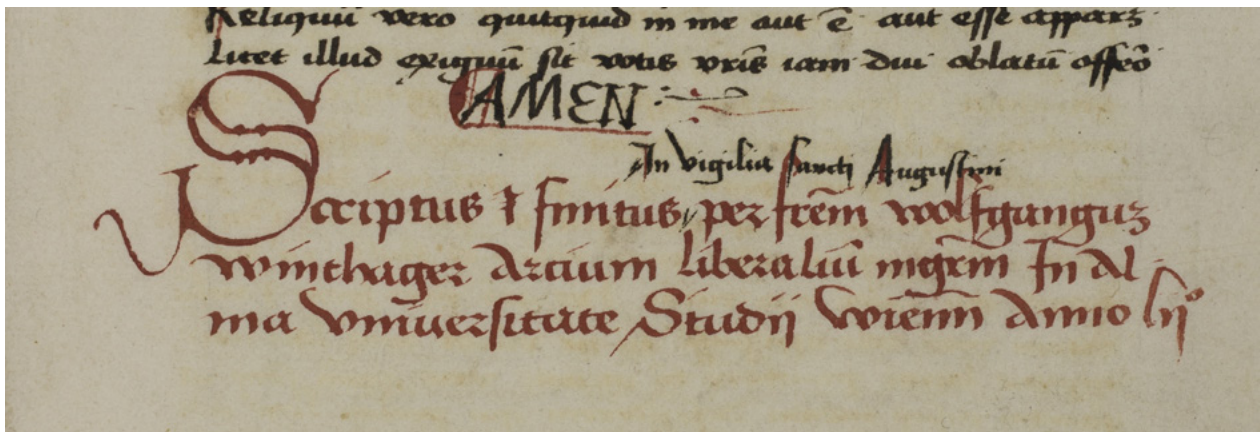 Reliquū vero quitquid in me aut ē aut esse apparꝫ
Licet illud exiguū sit votis vrīs iam dui oblatū offeō
AMEN
In vigilia sancti Augustini
Scriptus ⁊ finitus per frēm wolfganguꝫ
winthager Arcium liberaliū mgrm̄ In Al
ma vniuersitate Studii wienn̄ Anno lii°